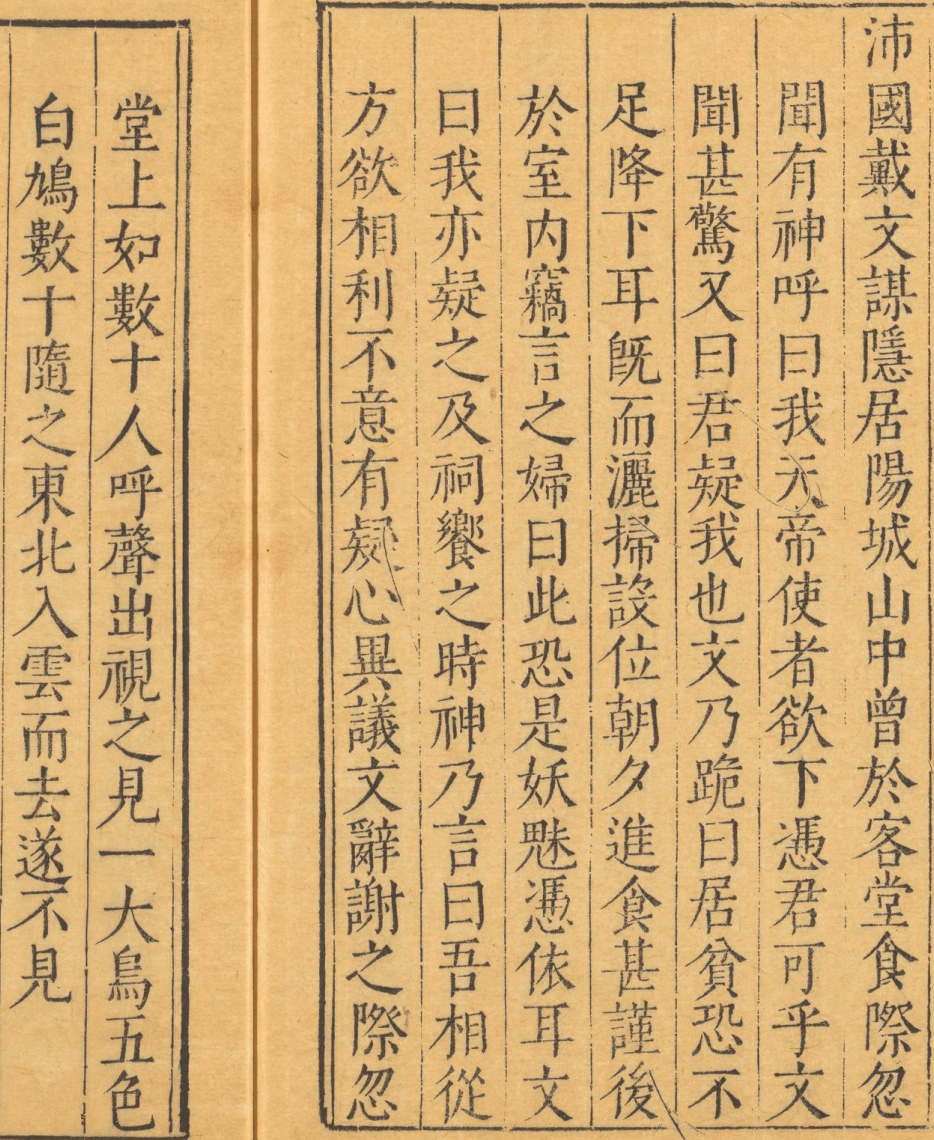 沛國戴文謀隱居陽城山中曾於客堂食際忽
聞有神呼曰我天帝使者欲下憑君可乎文
聞甚驚又曰君疑我也文乃跪曰居貧恐不
足降下耳旣而灑掃設位朝夕進食甚謹後
於室内竊言之婦曰此恐是妖魅憑依耳文
曰我亦疑之及祠饗之時神乃言曰吾相從
方欲相利不意有疑心異議文辭謝之際忽
堂上如數十人呼聲出視之見一大鳥五色
白鳩數十隨之東北入雲而去遂不見